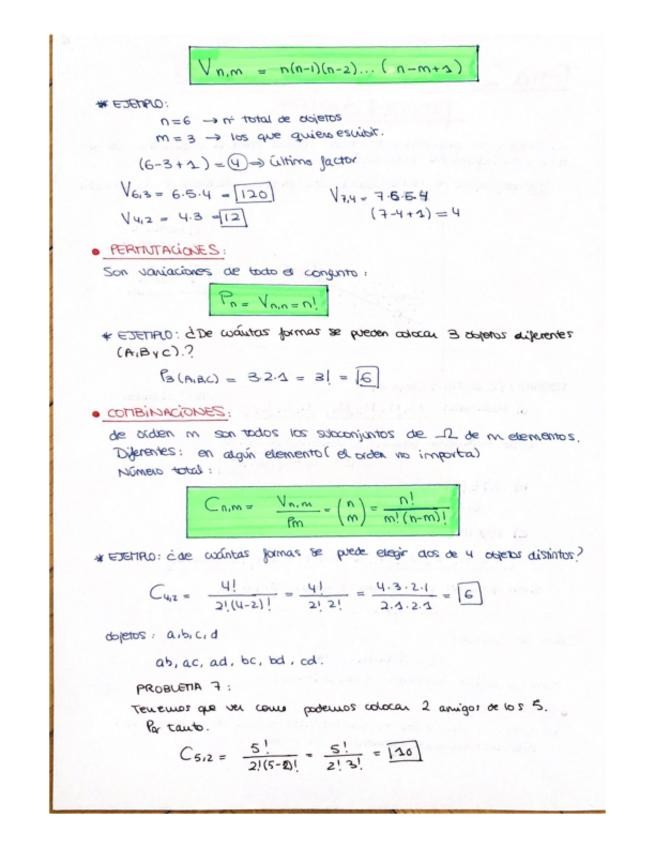 Vn,m = n(n-1)(n-2)... (n-m+1)
* EJEMPLO:
n=6 → nº total de objetos
m=3 → los que quiero escribir.
(6-3+1) = 4 → último factor
V6,3 = 6·5·4 = 120 V7,4 = 7·6·5·4
V4,2 = 4·3 = 12 (7-4+1) = 4
• PERMUTACIONES:
Son variaciones de todo el conjunto:
Pn = Vn,n = n!
* EJEMPLO: ¿De cuántas formas se pueden colocar 3 objetos diferentes
(A,B y C).?
P3 (A,B,C) = 3·2·1 = 3! = 6
• COMBINACIONES:
de orden m son todos los subconjuntos de Ω de m elementos.
Diferentes: en algún elemento (el orden no importa)
Número total:
Cn,m = Vn,m / Pm = (n m) = n! / m!(n-m)!
* EJEMPLO: ¿de cuántas formas se puede elegir dos de 4 objetos distintos?
C4,2 = 4! / 2!(4-2)! = 4! / 2! 2! = 4·3·2·1 / 2·1·2·1 = 6
objetos: a,b,c,d
ab, ac, ad, bc, bd, cd.
PROBLEMA 7:
Tenemos que ver como podemos colocar 2 amigos de los 5.
Por tanto.
C5,2 = 5! / 2!(5-2)! = 5! / 2! 3! = 10